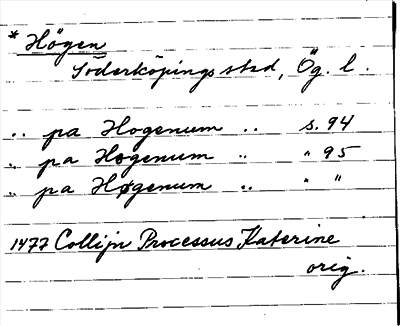 * Högen
Söderköpings stad, Ög. l.
.. pa Hogenum .. s. 94
.. pa Hogenum .. " 95
.. pa Høgenum .. " "
1477 Collijn Processus Katerine
orig.